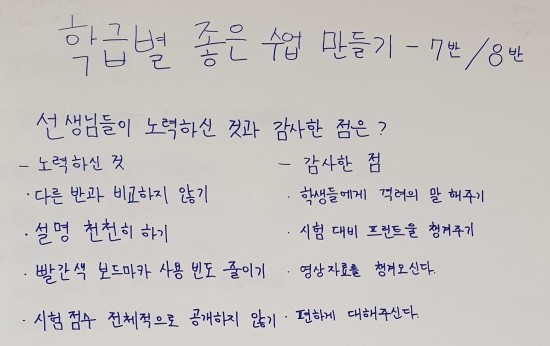 학급별 좋은 수업 만들기 - 7반/8반
선생님들이 노력하신 것과 감사한 점은?
- 노력하신 것
· 다른 반과 비교하지 않기
· 설명 천천히 하기
· 빨간색 보드마카 사용 빈도 줄이기
· 시험점수 전체적으로 공개하지 않기
- 감사한 점
· 학생들에게 격려의 말 해주기
· 시험 대비 프린트물 챙겨주기
· 영상자료를 챙겨오신다.
· 편하게 대해주신다.